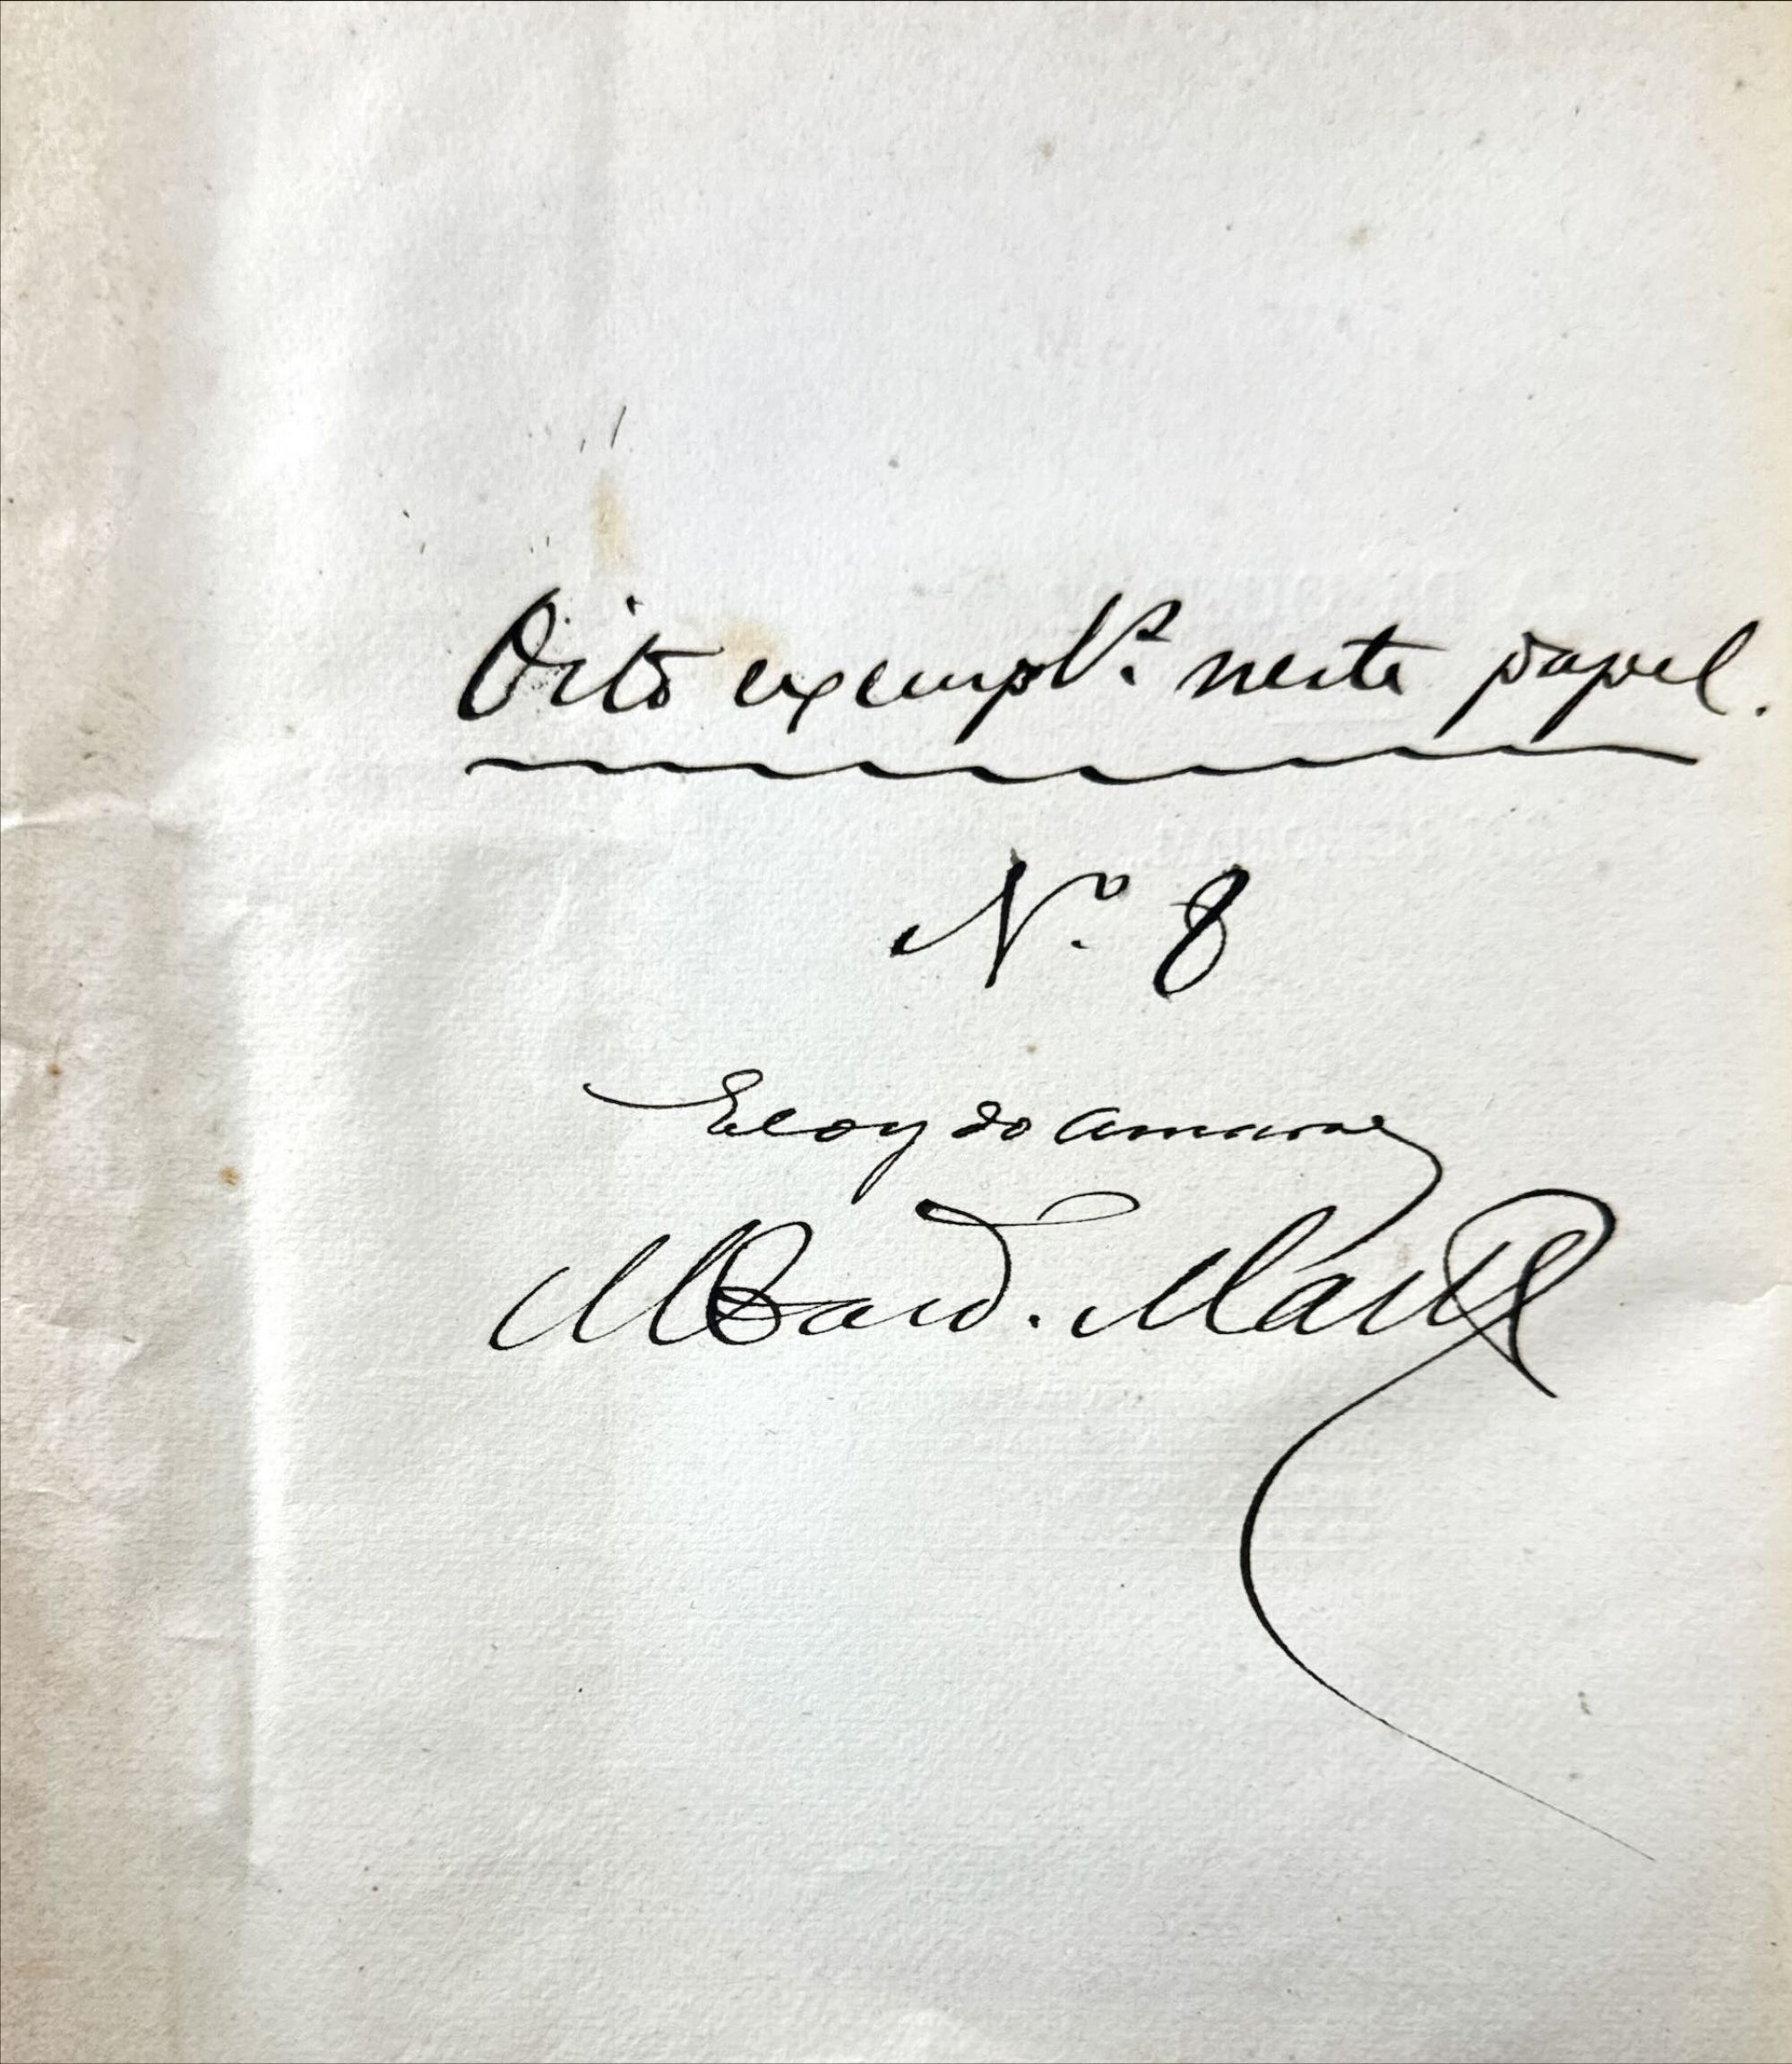 Oito exempl.s neste papel.
N.o 8
Eloy do Amaral
M Card. Martha